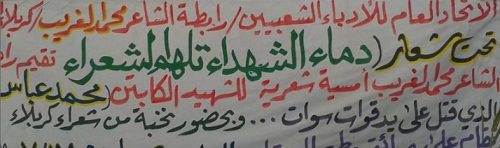 الاتحاد العام للأدباء الشعبيين / رابطة الشاعر محمد الغريب / كربلاء
تحت شعار (دماء الشهداء تلهم الشعراء تقيم را
الشاعر محمد الغريب أمسية شعرية للشهيد الكابتن (محمد عباس
الذي قتل على يد قوات سوات ... وبحضور نخبة من شعراء كربلاء